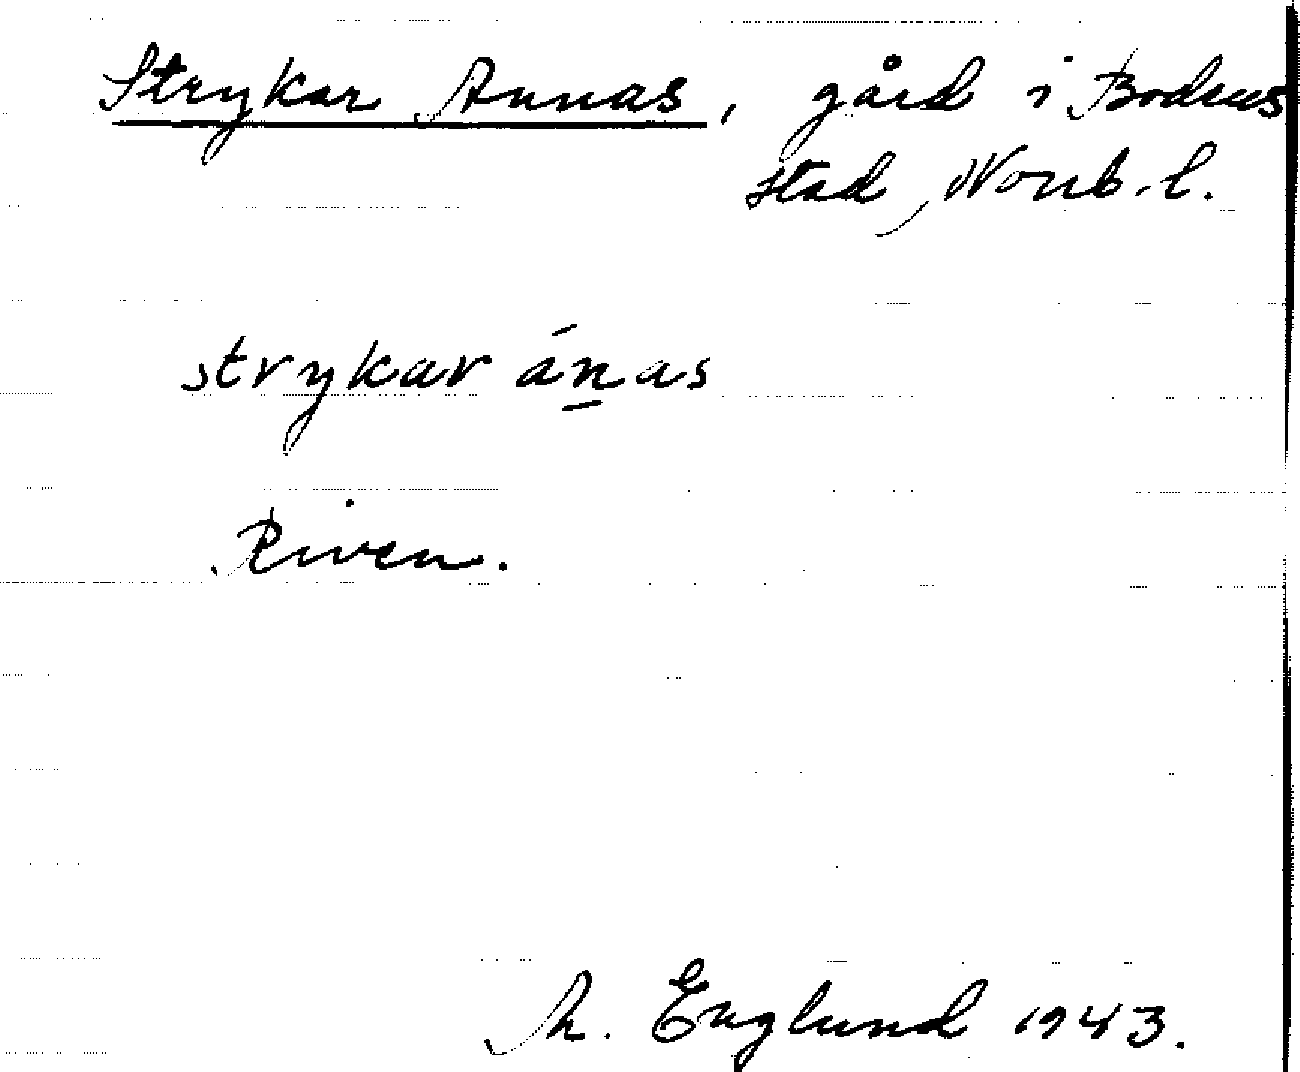 Strykar Annas, gård i Bodens
stad, Norrb. l.
strykar ánas
Riven.
A. Englund 1943.